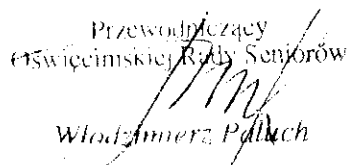 Przewodniczący
Oświęcimskiej Rady Seniorów
Włodzimierz Paluch